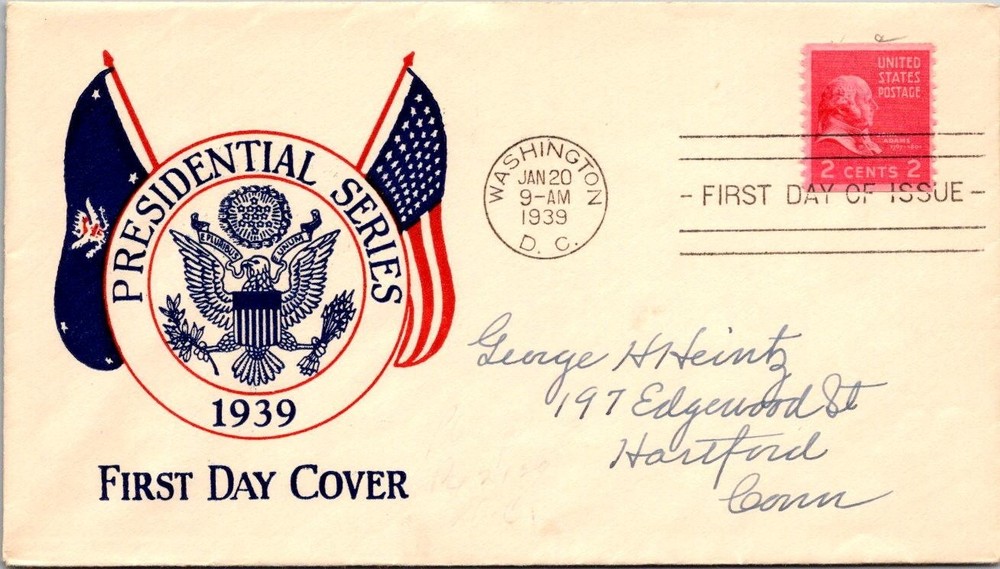 PRESIDENTIAL SERIES
E PLURIBUS UNUM
1939
FIRST DAY COVER
WASHINGTON
JAN 20
9-AM
1939
D. C.
UNITED
STATES
POSTAGE
ADAMS
2 CENTS 2
- FIRST DAY OF ISSUE -
George H Heintz
197 Edgewood St
Hartford
Conn